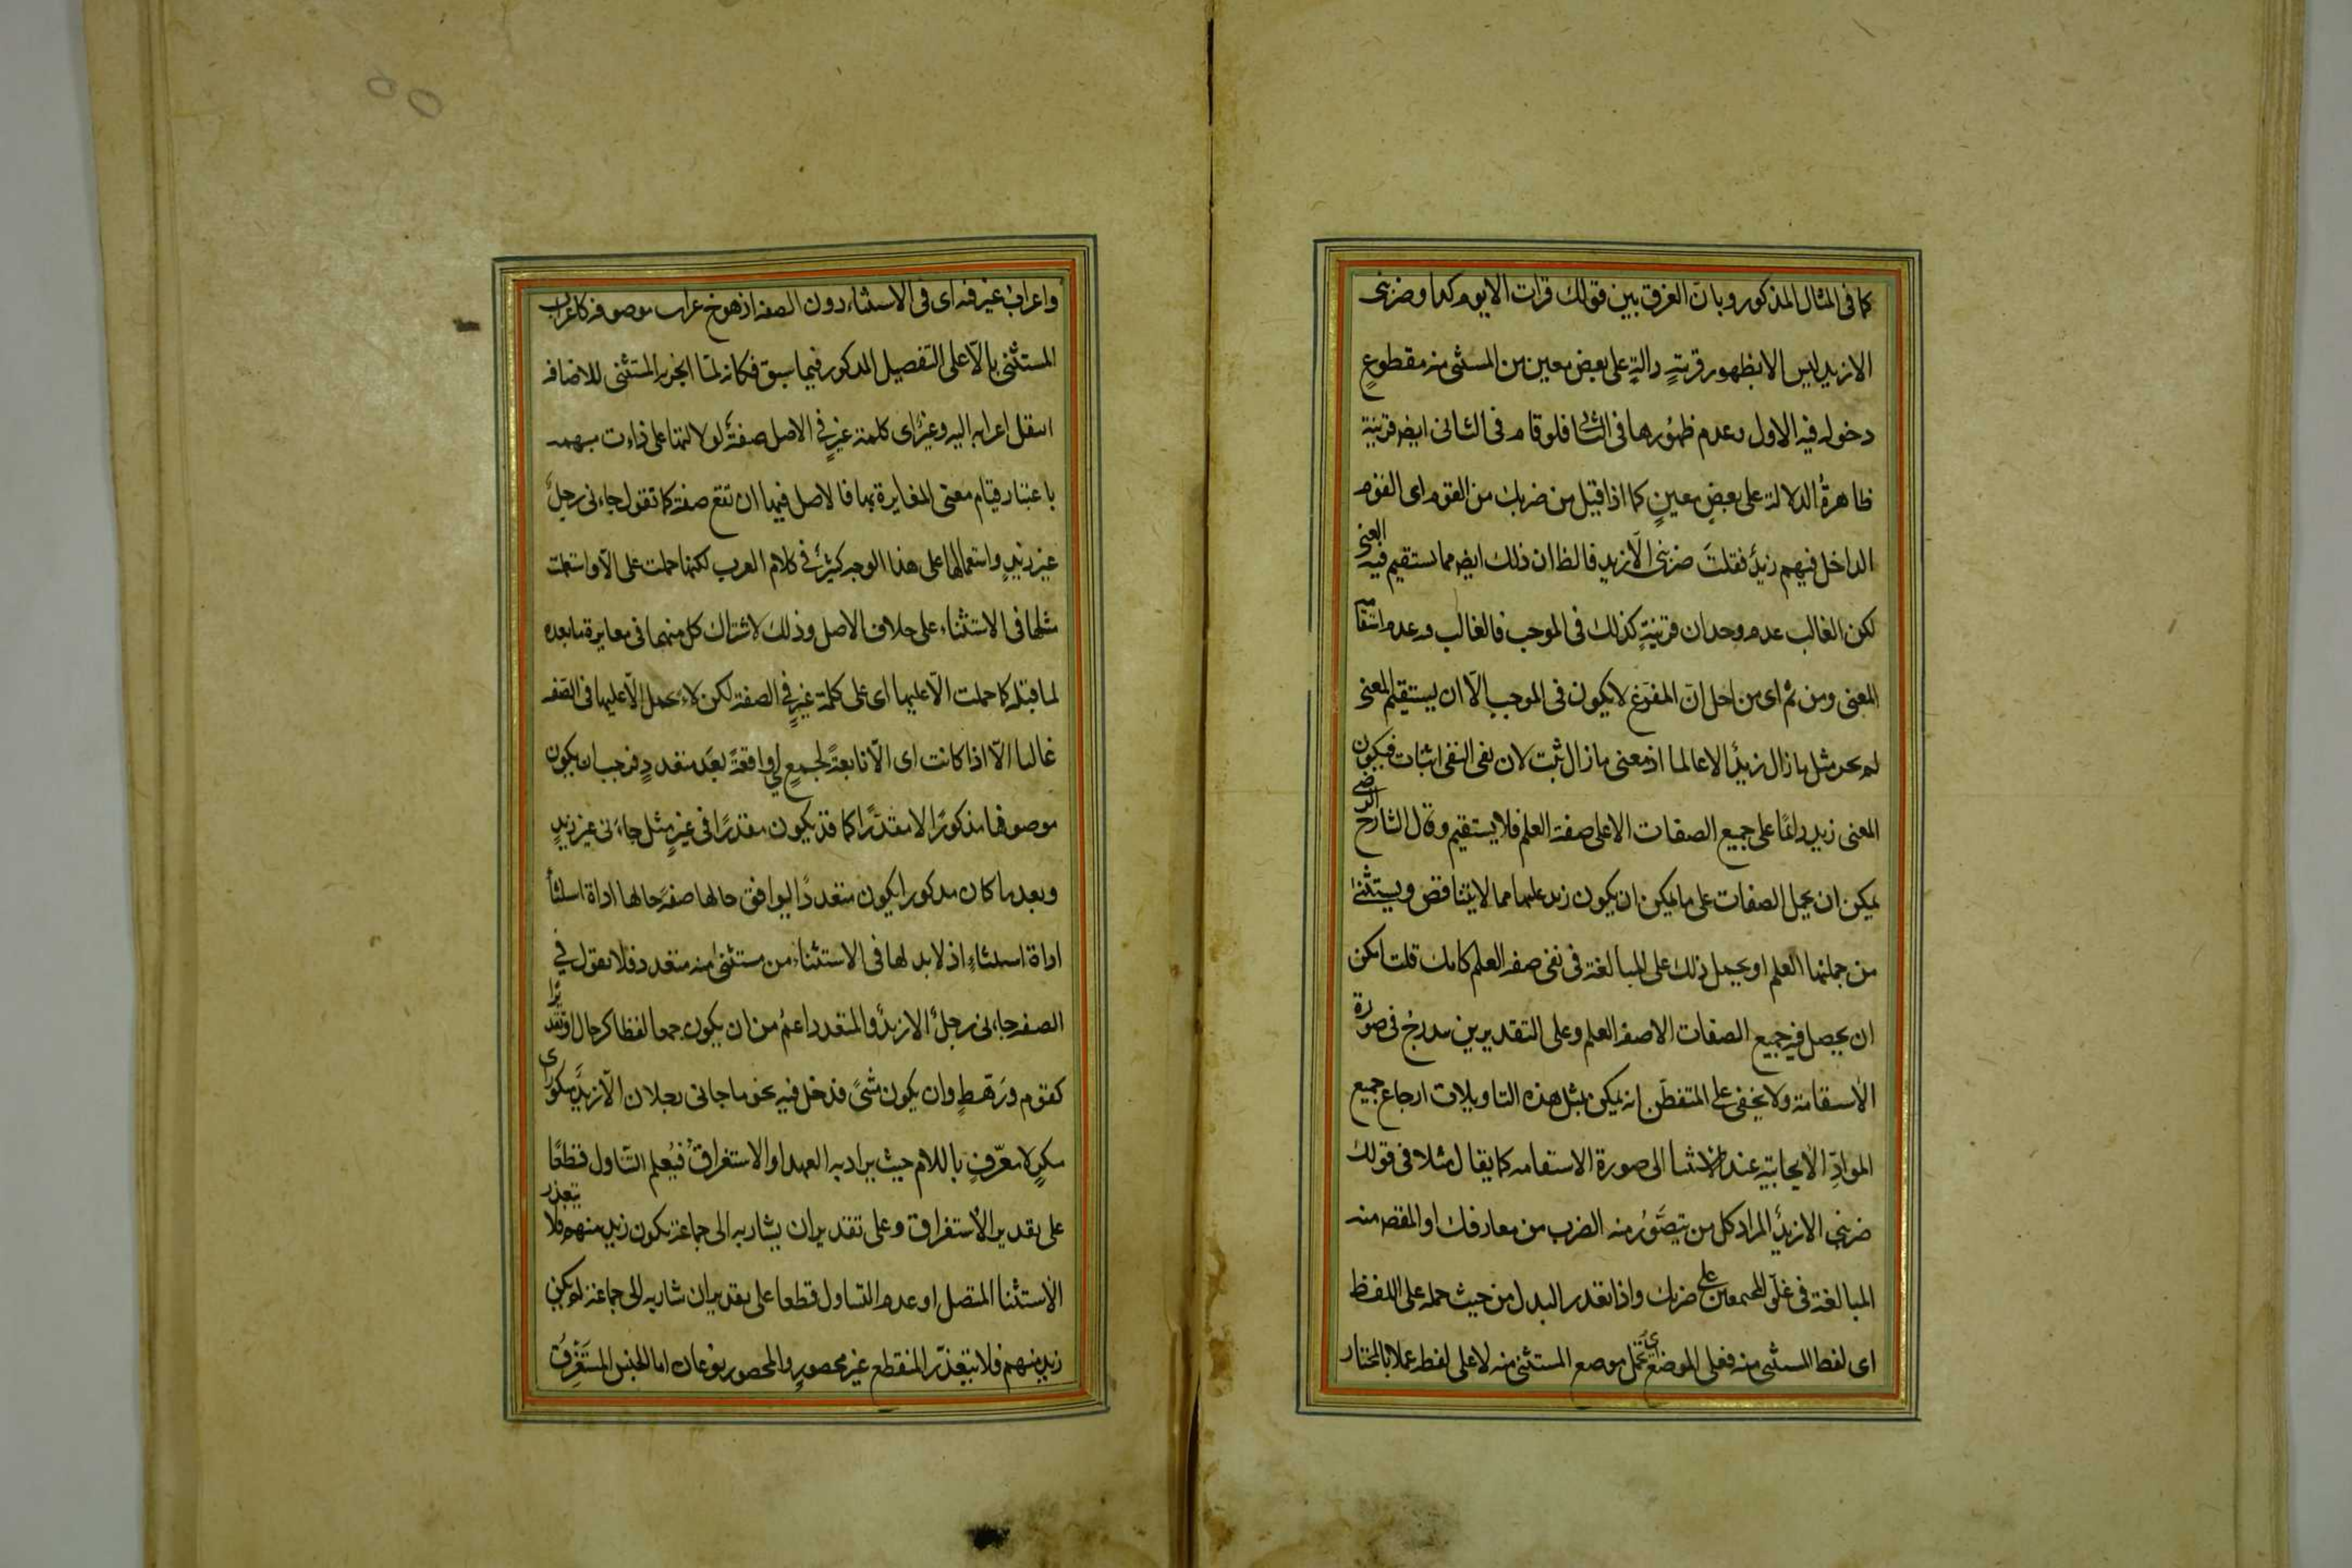 كما فى المثال المذكور وبان الفرق بين قولك قرات الا يوم كذا وضربنى
الا زيد ليس الا بظهور قرينةٍ دالةٍ على بعض معين من المستثنى منه مقطوعٍ
دخوله فيه الاول وعدم ظهورها فى الثانى فلو قام فى الثانى ايضا قرينة
ظاهرةُ الدلالة على بعضٍ معينٍ كما اذا قيل من ضربك من القوم اى القوم
الداخل فيهم زيدٌ فقلتَ ضربنى الّا زيد فالظ ان ذلك ايض مما يستقيم فيه المعنى
لكن الغالب عدم وجدان قرينةٍ كذلك فى الموجب فالغالب فيه عدم استقامة
المعنى ومن ثم اى من اجل انّ المفرّغ لا يكون فى الموجب الّا ان يستقيم المعنى
لم يجز مثل ما زال زيدٌ الا عالما اذ معنى ما زال ثبت لان نفى النفى اثبات فيكون
المعنى زيد دائمًا على جميع الصفات الا على صفة العلم فلا يستقيم وقال الشارح الرضى
يمكن ان يحمل الصفات على ما يمكن ان يكون زيد عليها مما لا يتناقض ويستثنى
من جملتها العلم او يحمل ذلك على المبالغة فى نفى صفة العلم كانك قلت امكن
ان يحصل فيه جميع الصفات الا صفة العلم وعلى التقديرين مندرج فى صورة
الاستقامة ولا يخفى على المتفطّن انه يمكن بمثل هذه التاويلات ارجاع جميع
الموادّ الايجابية عند الاستثنا الى صورة الاستقامه كما يقال مثلا فى قولك
ضربنى الا زيدٌ المراد كل من يتصوّر منه الضرب من معارفك او المقصر منه
المبالغة فى غلوّ المجتمعين على ضربك واذا تعذر البدل من حيث حمله على اللفظ
اى لفظ المستثنى منه فعلى الموضع اى يحمل موضع المستثنى منه لا على لفظه عملا بالمختار
واعراب غير فيه اى فى الاستثناء دون الصفة اذ هو ح عراب موصوفه كاعراب
المستثنى بالّا على التفصيل المذكور فيما سبق فكانه لمّا انجرّ به المستثنى للاضافه
انتقل اعرابه اليه وغيرُ اى كلمة غيرٍ فى الاصل صفةٌ لدلالتها على ذات مبهمه
باعتبار قيام معنى المغايرة بها فالاصل فيها ان تقع صفة كما تقول جاءنى رجلٌ
غير زيدٍ واستعمالها على هذا الوجه كثيرٌ فى كلام العرب لكنها حملت على الّا واستعملت
مثلها فى الاستثناء على خلاف الاصل وذلك لاشتراك كل منهما فى مغايرة ما بعده
لما قبله كما حملت الّا عليها اى على كلمة غيرٍ فى الصفة لكن لا يحمل الّا عليها فى الصفه
غالبا الّا اذا كانت اى الّا تابعةً لجمعٍ اى واقعةً بعَد متعددٍ فوجب ان يكون
موصوفها مذكورًا لا مقدّرًا كما قد يكون مقدرًا فى غيرٍ مثل جاءنى غير زيدٍ
وبعد ما كان مذكورا يكون متعددًا ليوافق حالها صفةً حالها اداة استثناء
اداة استثناءٍ اذ لا بد لها فى الاستثناء من مستثنى منه متعدد فلا تقول فى
الصفه جاءنى رجلٌ الا زيدٌ والمتعدد اعمّ من ان يكون جمعا لفظا كرجال او تقديرا
كقوم ورَهطٍ وان يكون مثنّى فدخل فيه نحو ما جانى رجلان الّا زيدٌ منكور اى
منكرٍ لا معرّفٍ باللام حيث يراد به العهد او الاستغراق فيُعلم التناول قطعًا
على تقدير الاستغراق وعلى تقدير ان يشار به الى جماعة يكون زيد منهم فلا يتعذر
الاستثنا المتصل او عدم التناول قطعا على تقدير ان يشار به الى جماعة لم يكن
زيد منهم فلا يتعذّر المنقطع غير محصورٍ والمحصور نوعان اما الجنس المستغرِقُ